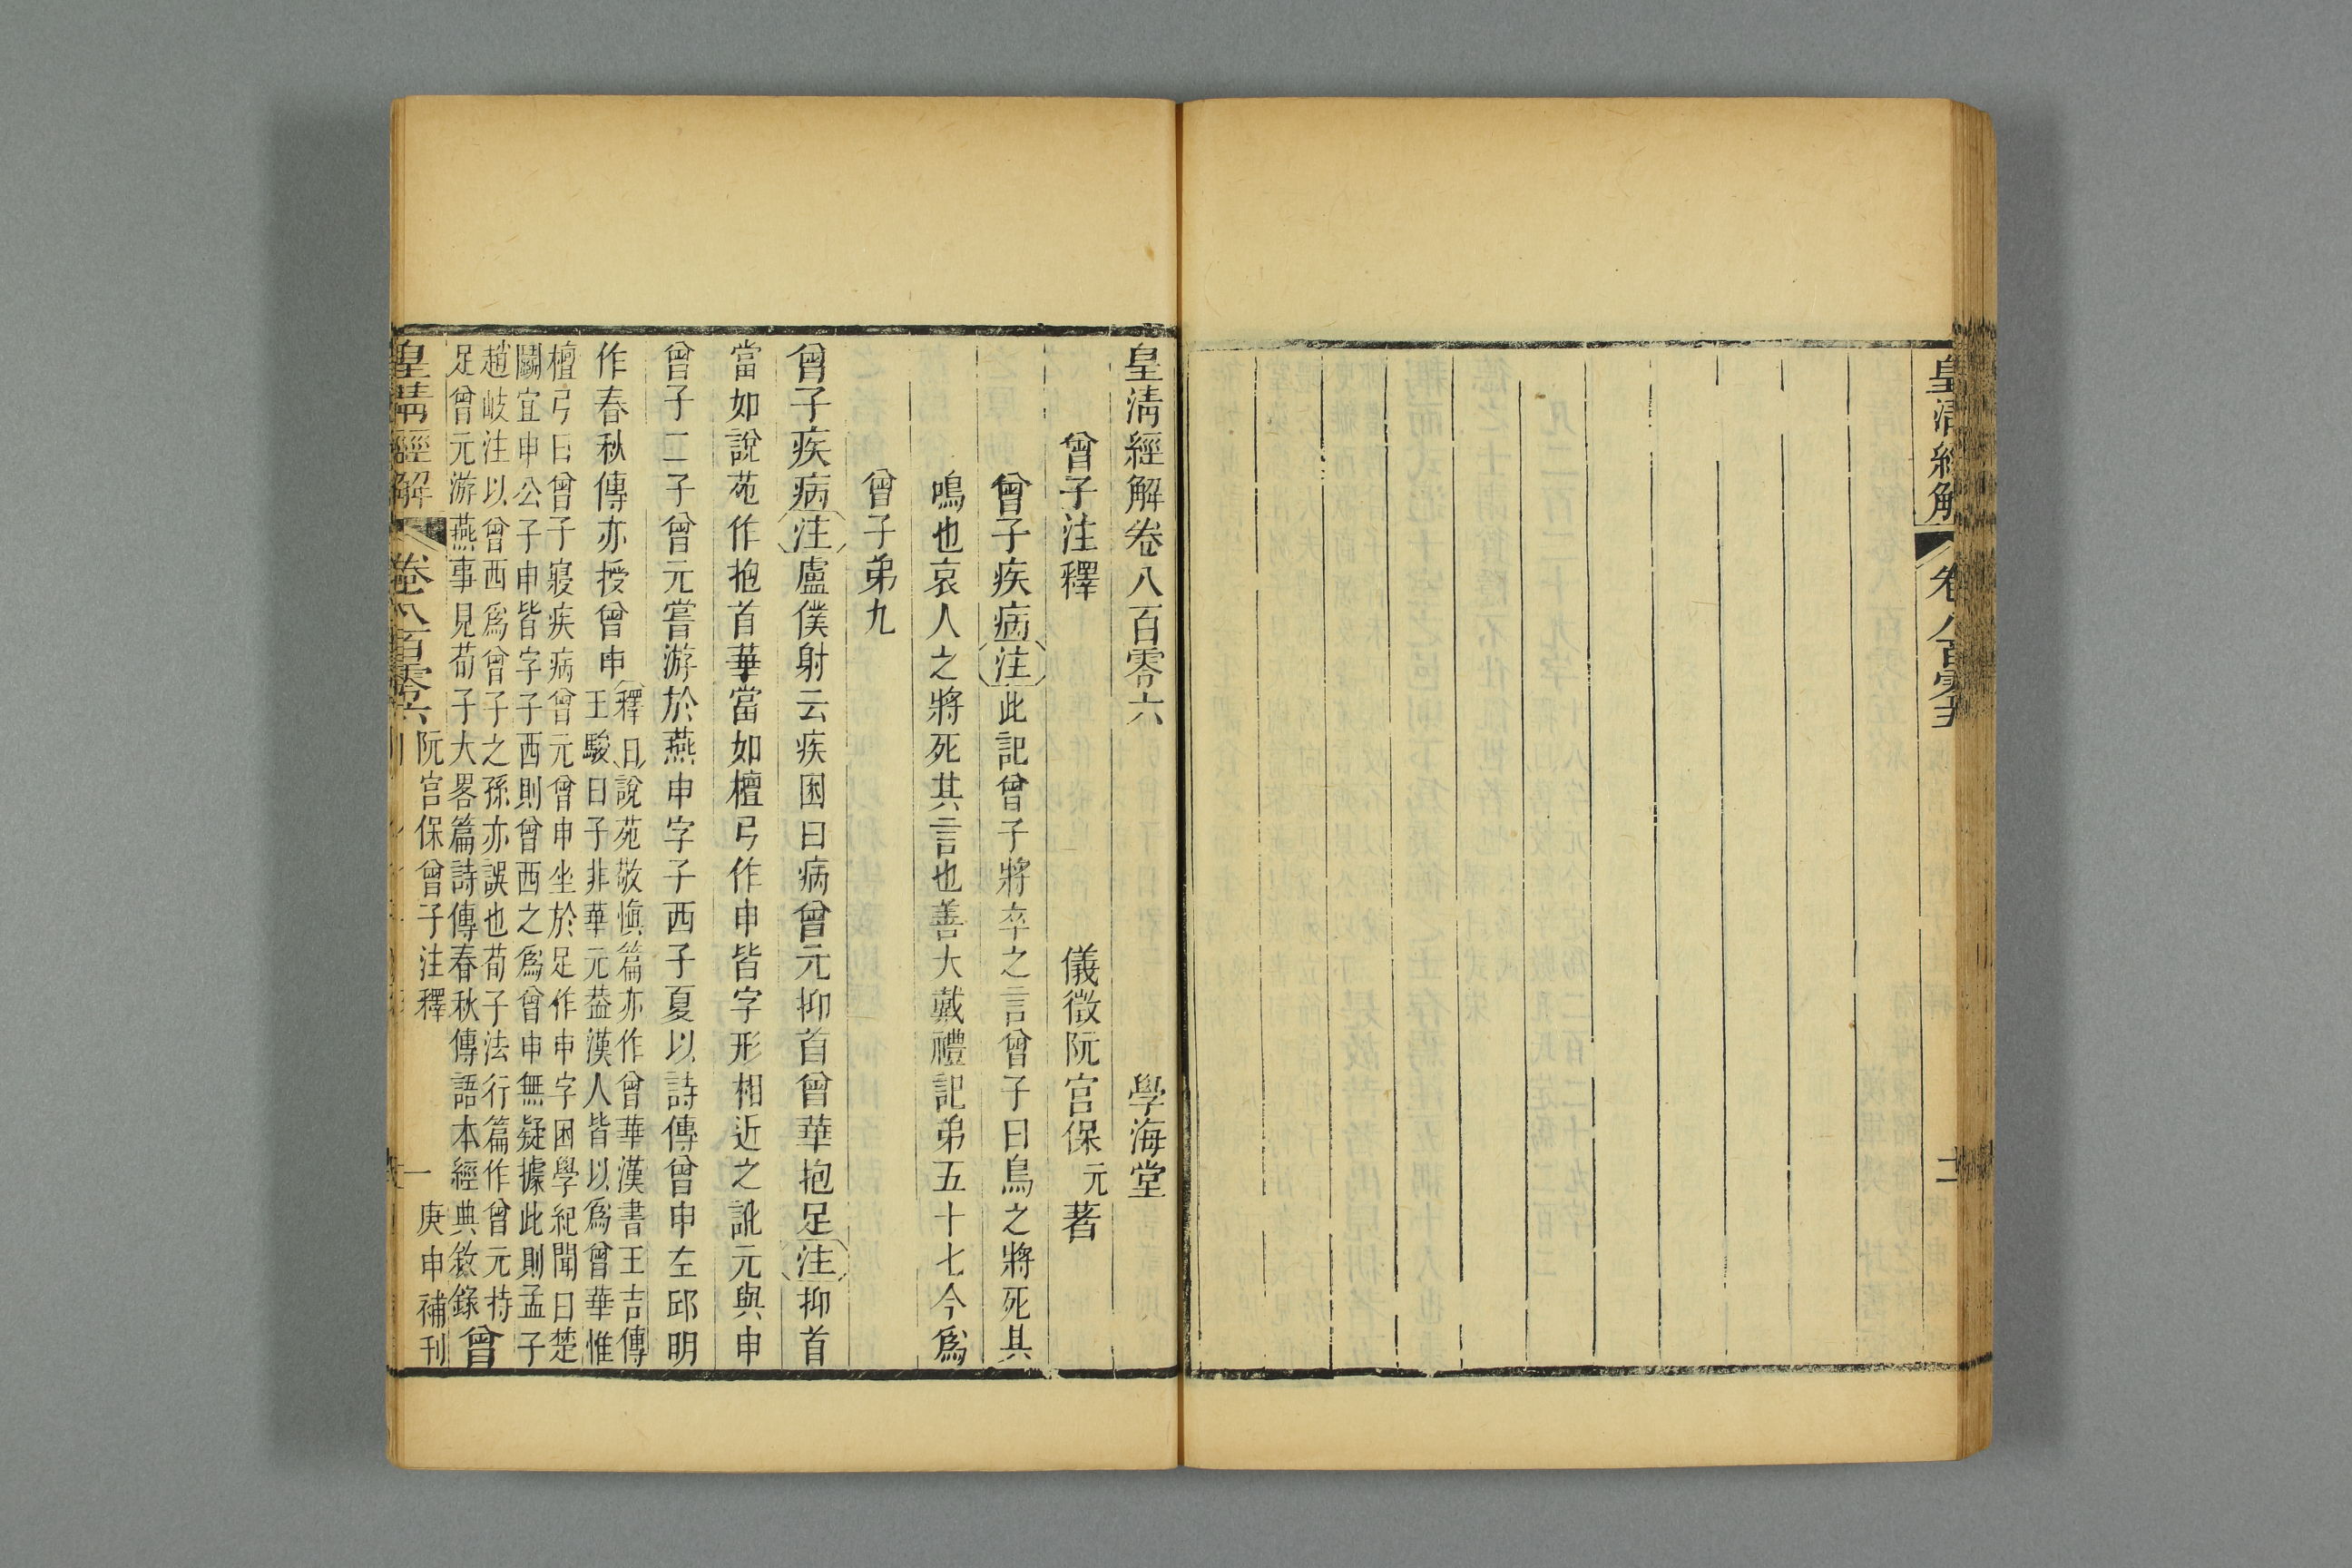 皇清經解
卷八百零五
皇清經解卷八百零六 學海堂
曾子注釋 儀徵阮宮保元著
曾子疾病注此記曾子將卒之言曾子曰鳥之將死其
鳴也哀人之將死其言也善大戴禮記弟五十七今爲
曾子弟九
曾子疾病注盧僕射云疾困曰病曾元抑首曾華抱足注抑首
當如說苑作抱首華當如檀弓作申皆字形相近之訛元與申
曾子二子曾元嘗游於燕申字子西子夏以詩傳曾申左邱明
作春秋傳亦授曾申釋曰說苑敬愼篇亦作曾華漢書王吉傳
王駿曰子非華元葢漢人皆以爲曾華惟
檀弓曰曾子寢疾病曾元曾申坐於足作申字困學紀聞曰楚
鬭宜申公子申皆字子西則曾西之爲曾申無疑據此則孟子
趙岐注以曾西爲曾子之孫亦誤也荀子法行篇作曾元持
足曾元游燕事見荀子大畧篇詩傳春秋傳語本經典敘錄曾
皇清經解 卷八百零六 阮宮保曾子注釋 一 庚申補刊